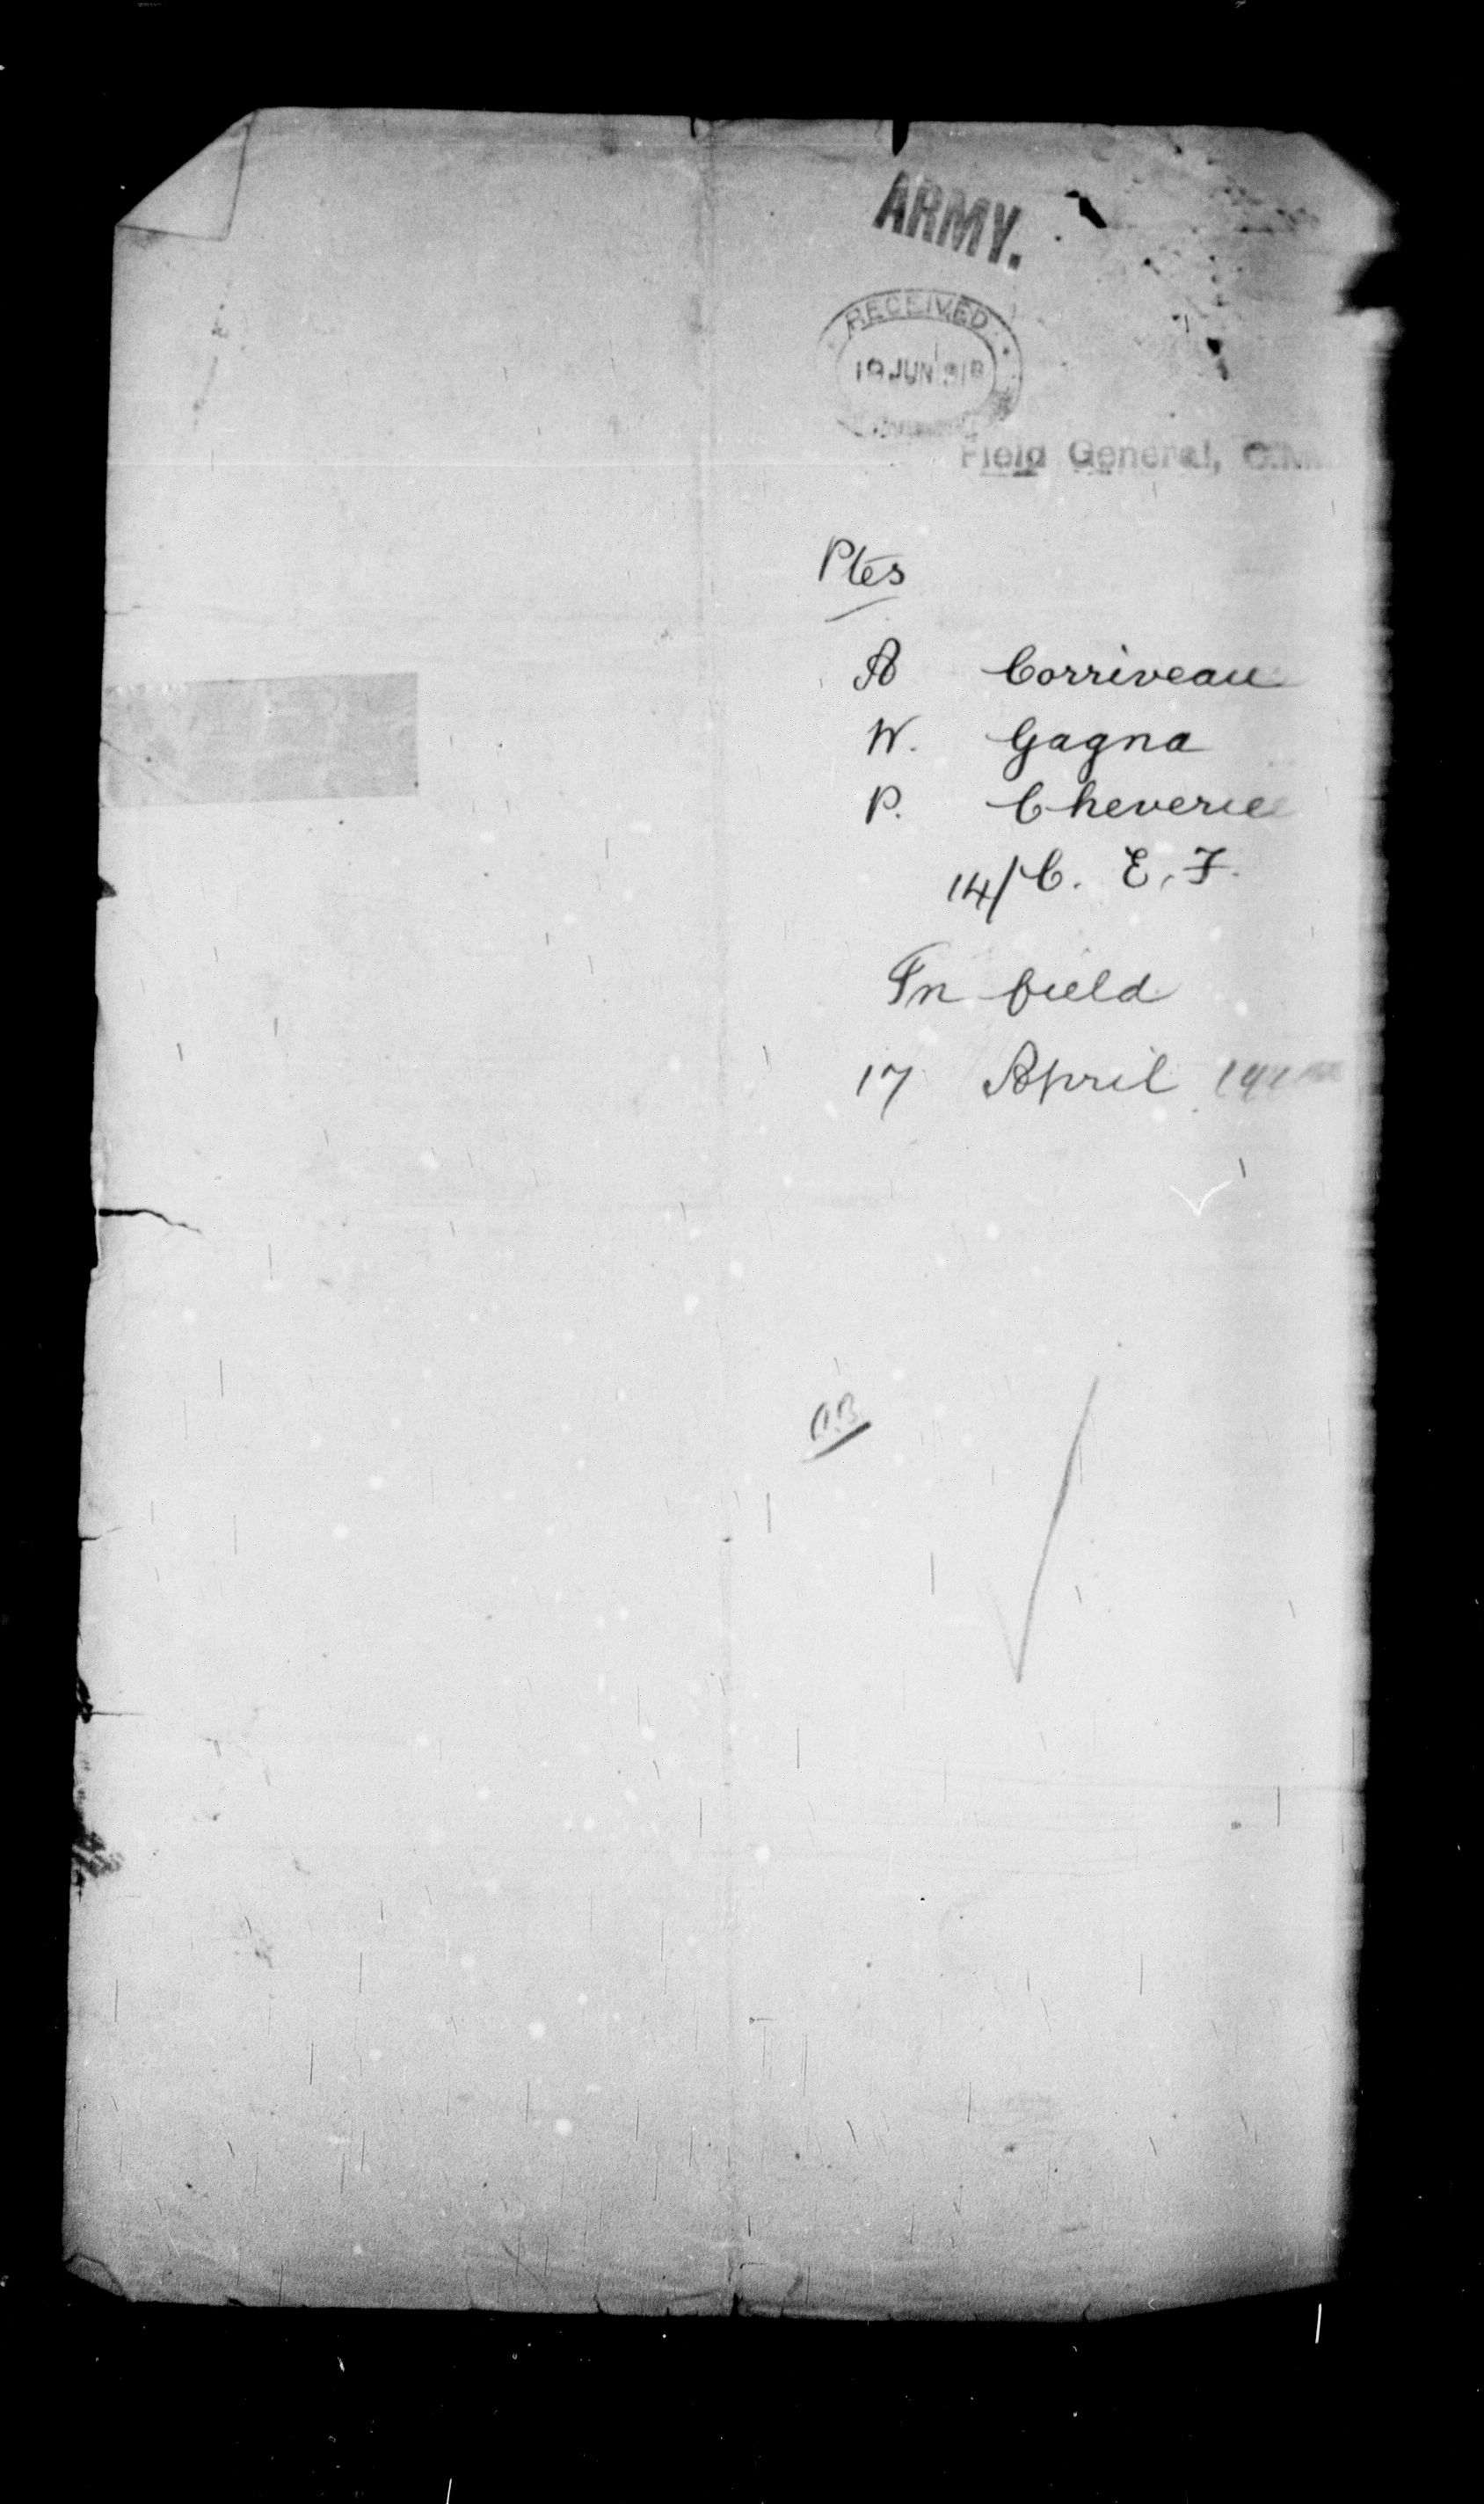 ARMY.
RECEIVED
19 JUN 1918
Field General, C.M.
Ptes
A Corriveau
W. Gagna
P. Cheverie
14/C. E. F.
In field
17 April